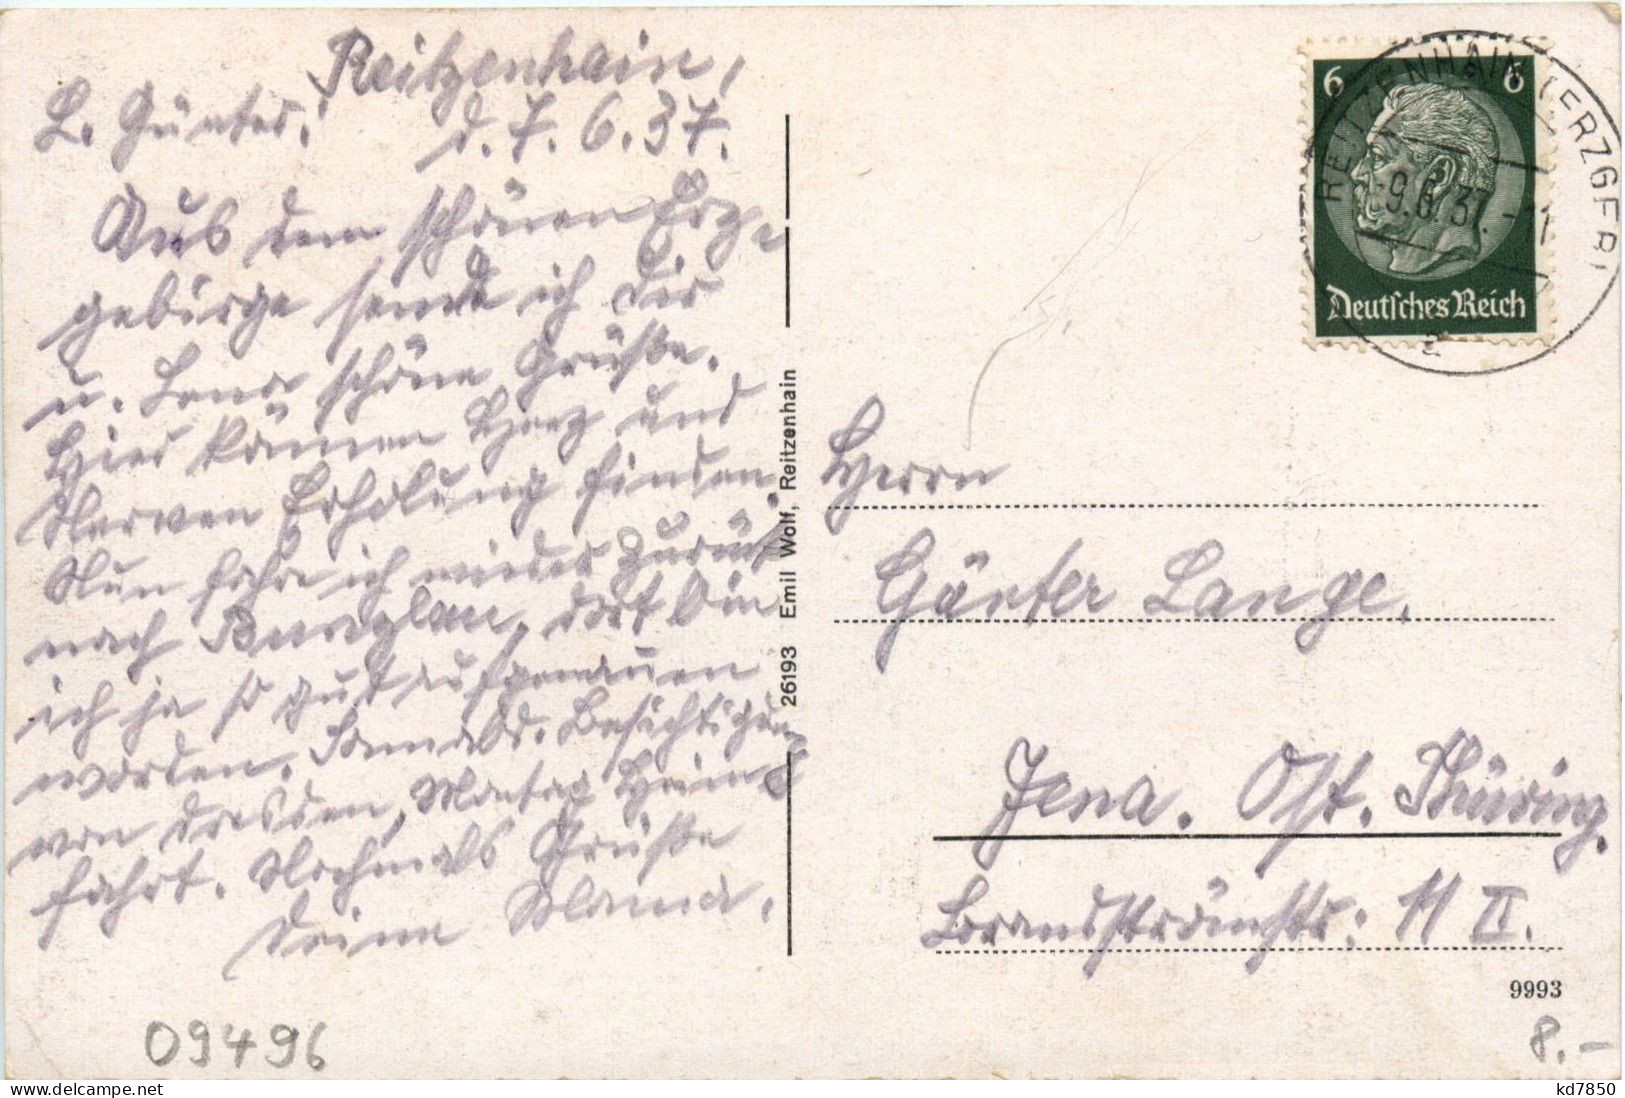 Reitzenhain,
d. 7. 6. 37.
L. Günter!
Aus dem schönen Erz-
gebirge sende ich Dir
u. Lena schöne Grüße.
Hier können Herz und
Nerven Erholung finden.
Nun fahre ich wieder zurück
nach Bunzlau, dort bin
ich ja so gut aufgenommen
worden. Sonnabd. Besichtigung
von Dresden, Montag Heim-
fahrt. Nochmals Grüße
Deine Mama.
26193 Emil Wolf, Reitzenhain
6 6
Deutsches Reich
REITZENHAIN (ERZGEB)
9.6.37.-11
a
Herrn
Günter Lange,
Jena. Ost. Thüring.
11 II.
9993
09496
8.-
kd7850